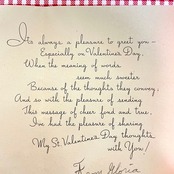 It's always a pleasure to greet you –
Especially on Valentine's Day.
When the meaning of words
seem much sweeter
Because of the thoughts they convey.
And so with the pleasure of sending
This message of cheer fond and true.
I've had the pleasure of sharing
My St. Valentine's Day thoughts
with You!